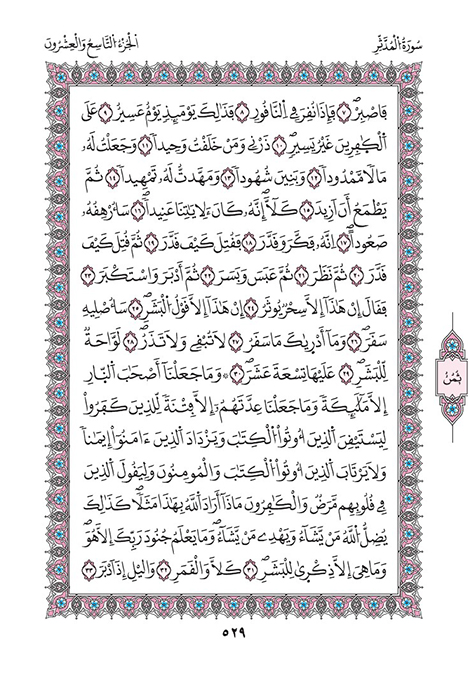 سُورَةُ الْمُدَّثِّرِ
اَلْجُزْءُ التَّاسِعُ وَالْعِشْرُونَ
فَاصْبِرْ ٧ فَإِذَا نُقِرَ فِي النَّاقُورِ ٨ فَذَٰلِكَ يَوْمَئِذٍ يَوْمٌ عَسِيرٌ ٩ عَلَى
اَلْكٰفِرِينَ غَيْرُ يَسِيرٍ ١٠ ذَرْنِي وَمَنْ خَلَقْتُ وَحِيداً ١١ وَجَعَلْتُ لَهُۥ
مَالاً مَّمْدُوداً ١٢ وَبَنِينَ شُهُوداً ١٣ وَمَهَّدتُّ لَهُۥ تَمْهِيداً ١٤ ثُمَّ
يَطْمَعُ أَنَ اَزِيدَ ١٥ كَلَّآ إِنَّهُۥ كَانَ ءَلِأيٰتِنَا عَنِيداً ١٦ سَأُرْهِقُهُۥ
صَعُوداً ١٧ اِنَّهُۥ فَكَّرَ وَقَدَّرَ ١٨ فَقُتِلَ كَيْفَ قَدَّرَ ١٩ ثُمَّ قُتِلَ كَيْفَ
قَدَّرَ ٢٠ ثُمَّ نَظَرَ ٢١ ثُمَّ عَبَسَ وَبَسَرَ ٢٢ ثُمَّ أَدْبَرَ وَاسْتَكْبَرَ ٢٣
فَقَالَ إِنْ هَٰذَآ إِلَّا سِحْرٌ يُوثَرُ ٢٤ إِنْ هَٰذَآ إِلَّا قَوْلُ الْبَشَرِ ٢٥ سَأُصْلِيهِ
سَقَرَ ٢٦ وَمَآ أَدْرٰيكَ مَا سَقَرُ ٢٧ لَا تُبْقِي وَلَا تَذَرُ ٢٨ لَوَّاحَةٌ
لِّلْبَشَرِ ٢٩ عَلَيْهَا تِسْعَةَ عَشَرَ ٣٠ وَمَا جَعَلْنَآ أَصْحَٰبَ النّارِ
إِلَّا مَلَٰٓئِكَةً وَمَا جَعَلْنَا عِدَّتَهُمُۥٓ إِلَّا فِتْنَةً لِّلَّذِينَ كَفَرُواْ
لِيَسْتَيْقِنَ الَّذِينَ أُوتُواْ الْكِتَٰبَ وَيَزْدَادَ الَّذِينَ ءَامَنُوٓاْ إِيمَٰناً
وَلَا يَرْتَابَ الَّذِينَ أُوتُواْ الْكِتَٰبَ وَالْمُومِنُونَ وَلِيَقُولَ الَّذِينَ
فِي قُلُوبِهِم مَّرَضٌ وَالْكَٰفِرُونَ مَاذَآ أَرَادَ اَللَّهُ بِهَٰذَا مَثَلاً كَذَٰلِكَ
يُضِلُّ اللَّهُ مَنْ يَّشَآءُ وَيَهْدِے مَنْ يَّشَآءُ وَمَا يَعْلَمُ جُنُودَ رَبِّكَ إِلَّا هُوَ
وَمَا هِيَ إِلَّا ذِكْرٰى لِلْبَشَرِ ٣١ كَلَّا وَالْقَمَرِ ٣٢ وَاليْلِ إِذَ اَدْبَرَ ٣٣
ثُمُنٌ
٥٢٩